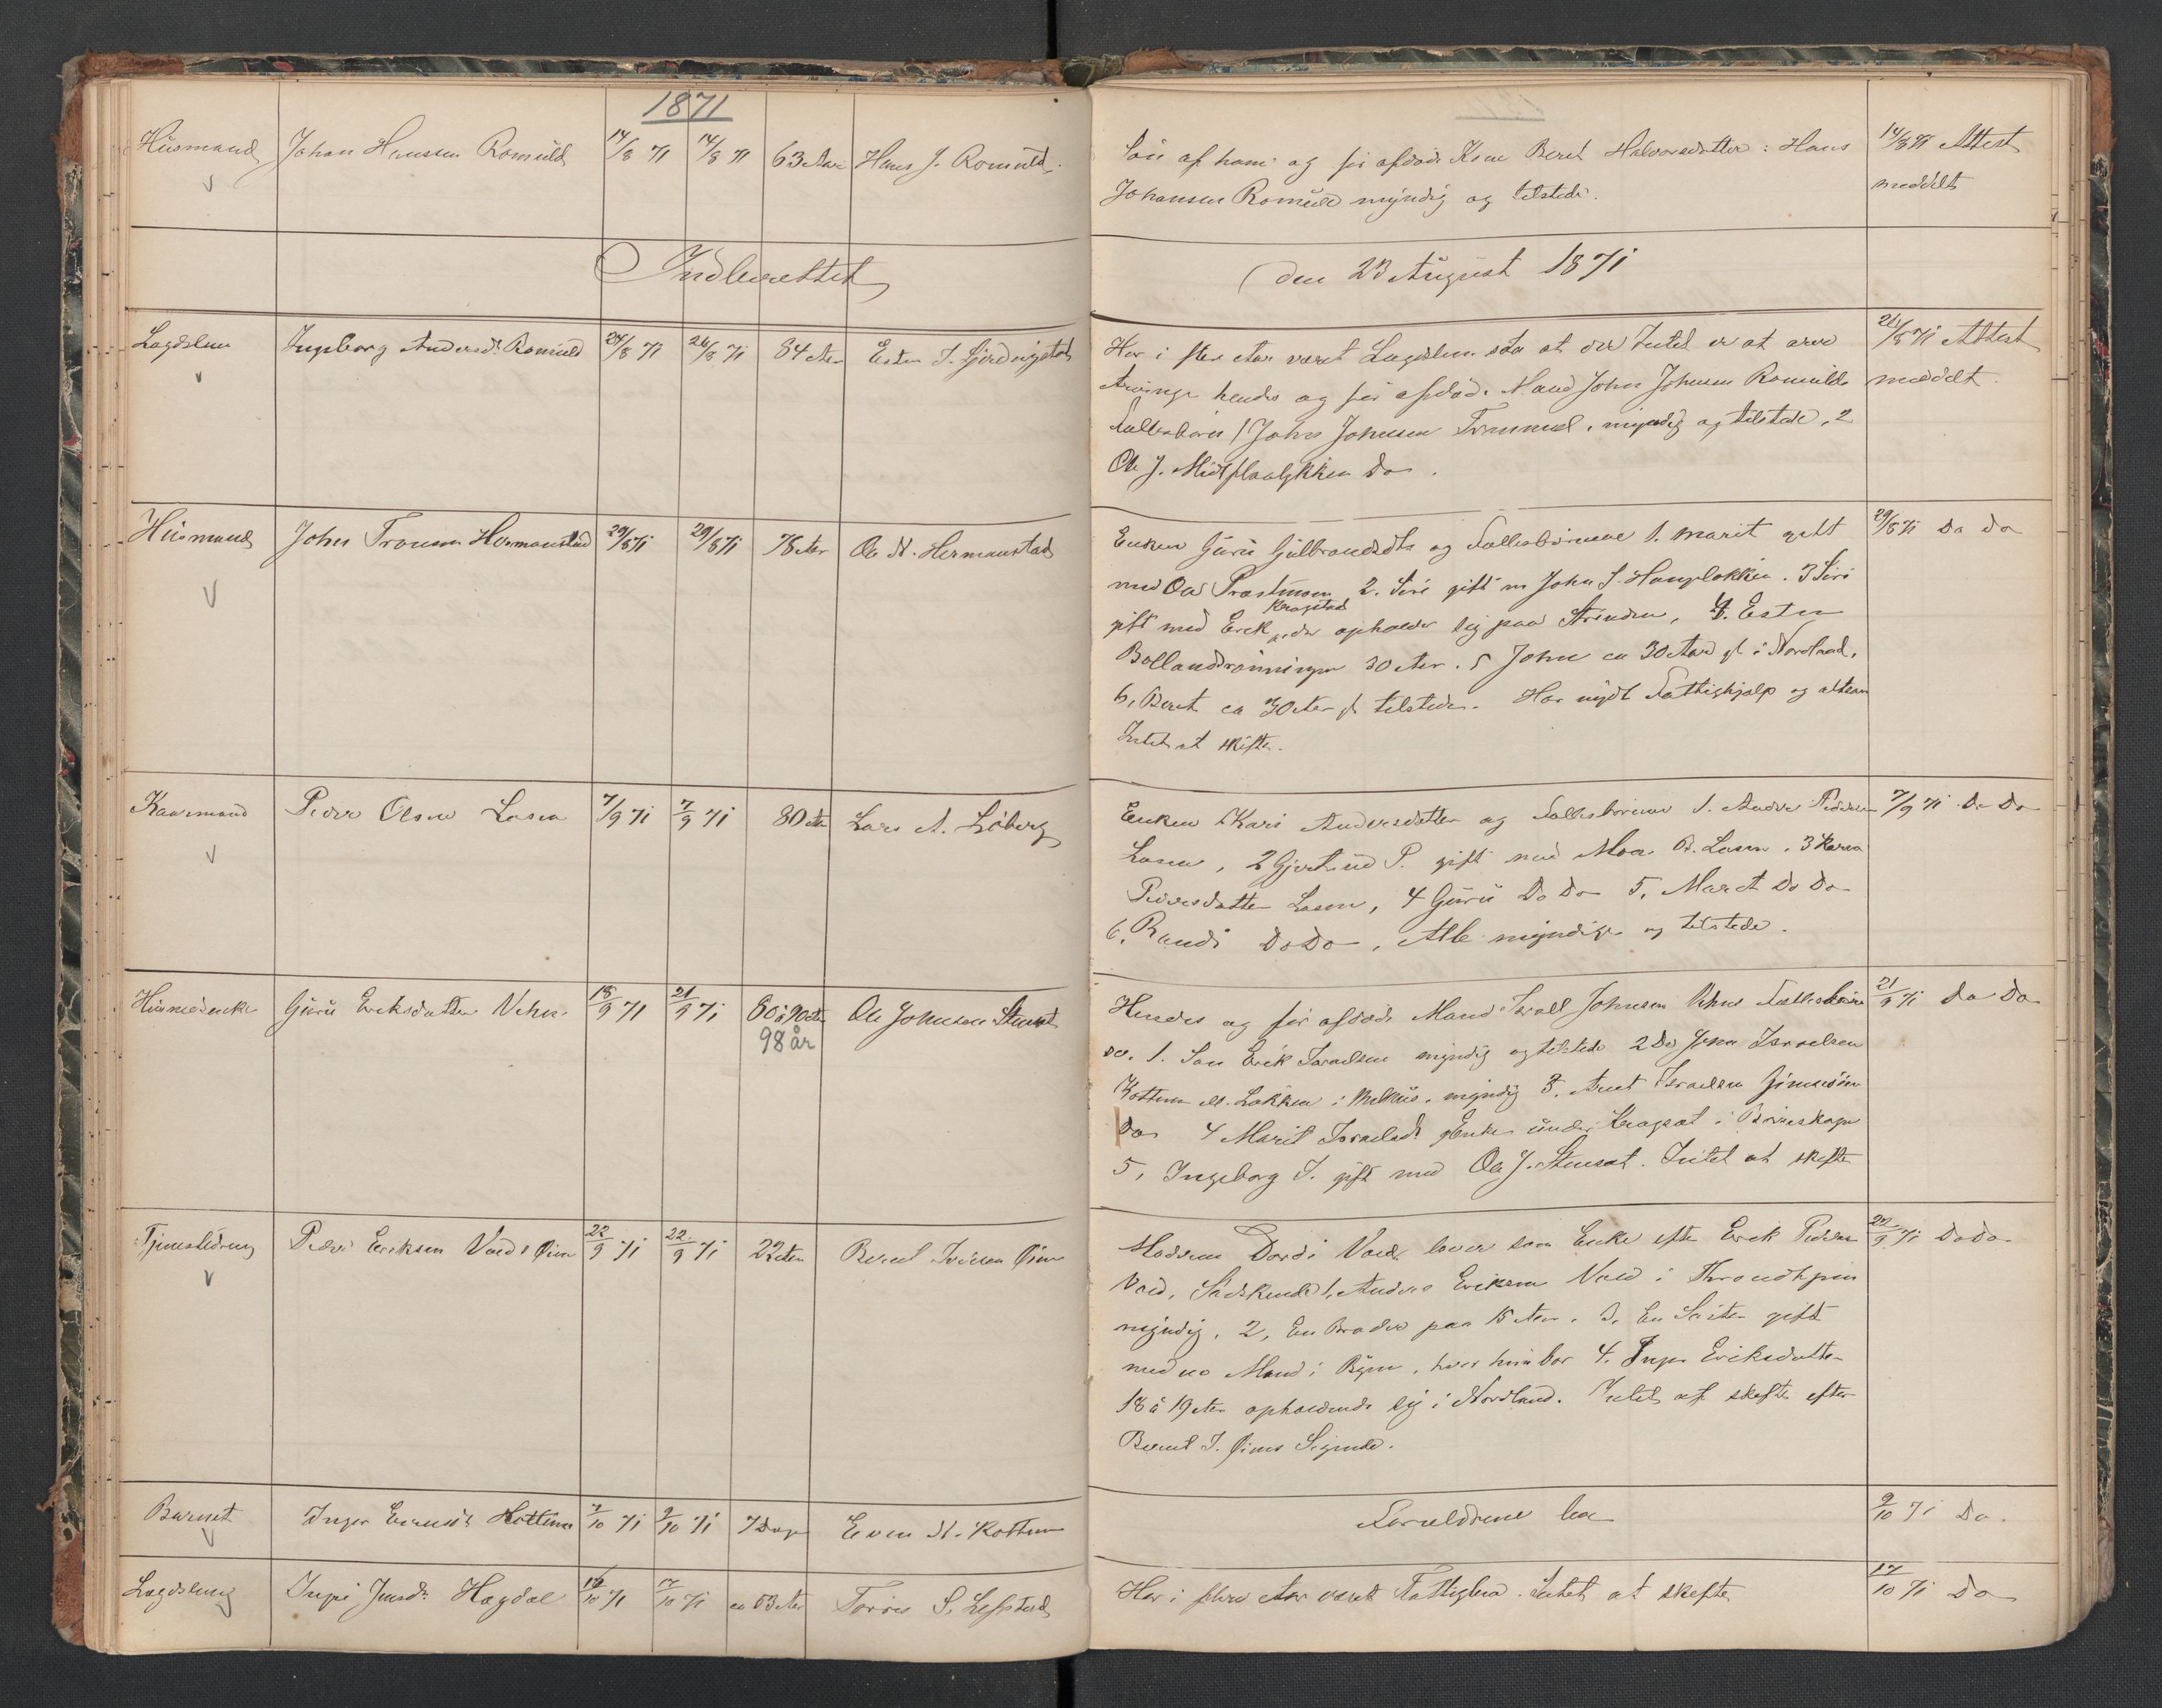 1871
Husmand Johan Hanssen Romuld 14/8 71 14/8 71 63 Aar Hans J. Romuld.
Søn af ham og før afdøde Kone Beret Halvorsdatter: Hans 14/8 71 Attest
Johansen Romuld myndig og tilstede. meddelt
Indberettet den 23 August 1871
Lægdslem Ingeborg Andersdr. Romuld 24/8 71 26/8 71 84 Aar Esten J.
Har i flere Aar været Lægdslem saa at der Intet er at arve 26/8 71 Attest
Arvinge hendes og før afdøde Mand John Johnsen Romulds meddelt.
Fællesbørn 1 John Johnsen myndig og tilstede, 2
Ole J. Do.
Husmand John Tronsen Hermanstad 29/8 71 29/8 71 78 Aar Ole N. Hermanstad
Enken Guru Gulbrandsdtr og Fællesbørnene 1. Marit gift 29/8 71 Do Do
med Ole Præstmoen 2. Siri gift m John S. Haugløkken. 3 Siri
gift med Erik Kragstad, der opholder sig paa Strinden, 4. Esten
Bollandsrønningen 30 Aar. 5 John ca 30 Aar gl i Nordland,
6, Beret ca 30 Aar gl tilstede. Har nydt Fattighjælp og altsaa
Intet at skifte.
Kaarmand Peder Olsen Losen 7/9 71 7/9 71 80 Aar Lars A. Løberg
Enken Kari Andersdatter og Fællesbørnene 1. Anders Pedersen 7/9 71 Do Do
Losen, 2 Gjertrud P. gift med Losen. 3 Karen
Pedersdatter Losen, 4 Guru Do Do 5, Maret Do Do
6. Randi Do Do, Alle myndige og tilstede.
Husmandsenke Guru Eriksdatter Vehn 18/9 71 21/9 71 80 à 90 Aar Ole Johnsen Stensaet
98 år
Hendes og før afdøde Mand Israel Johnsen Vehns Fællesbørn 21/9 71 Do Do
er. 1. Søn Erik Israelsen myndig og tilstede 2 Do John Israelsen
Løkken i Melhus. myndig 3. Arnt Israelsen
Do 4 Marit Israelsdr Enke under i Børseskogn
5, Ingeborg I. gift med Ole J. Stensaet. Intet at skifte
Tjenestedreng Peder Eriksen Vold Øien 22/9 71 22/9 71 22 Aar Berent Iversen Øien
Moderen Dordi Vold lever som Enke efter Erik Pedersen 22/9 71 Do Do
Vold, Sødskende 1. Anders Eriksen Vold i Throndhjem
myndig, 2, En Broder paa 15 Aar. 3. En Søster gift
med en Mand i Byen, hvor hun bor 4. Inger Eriksdatter
18 à 19 Aar opholdende sig i Nordland. Intet at skifte efter
Berent I. Øiens Sigende.
Barnet Inger Evensdr Kottum 2/10 71 9/10 71 7 Dage Even N. Kottum
Forældrene lever 9/10 71 Do.
Lægdslem Jensdr Hagdal 16/10 71 17/10 71 ca 63 Aar S. Lefstad
Har i flere Aar været Fattiglem. Intet at skifte 17/10 71 Do